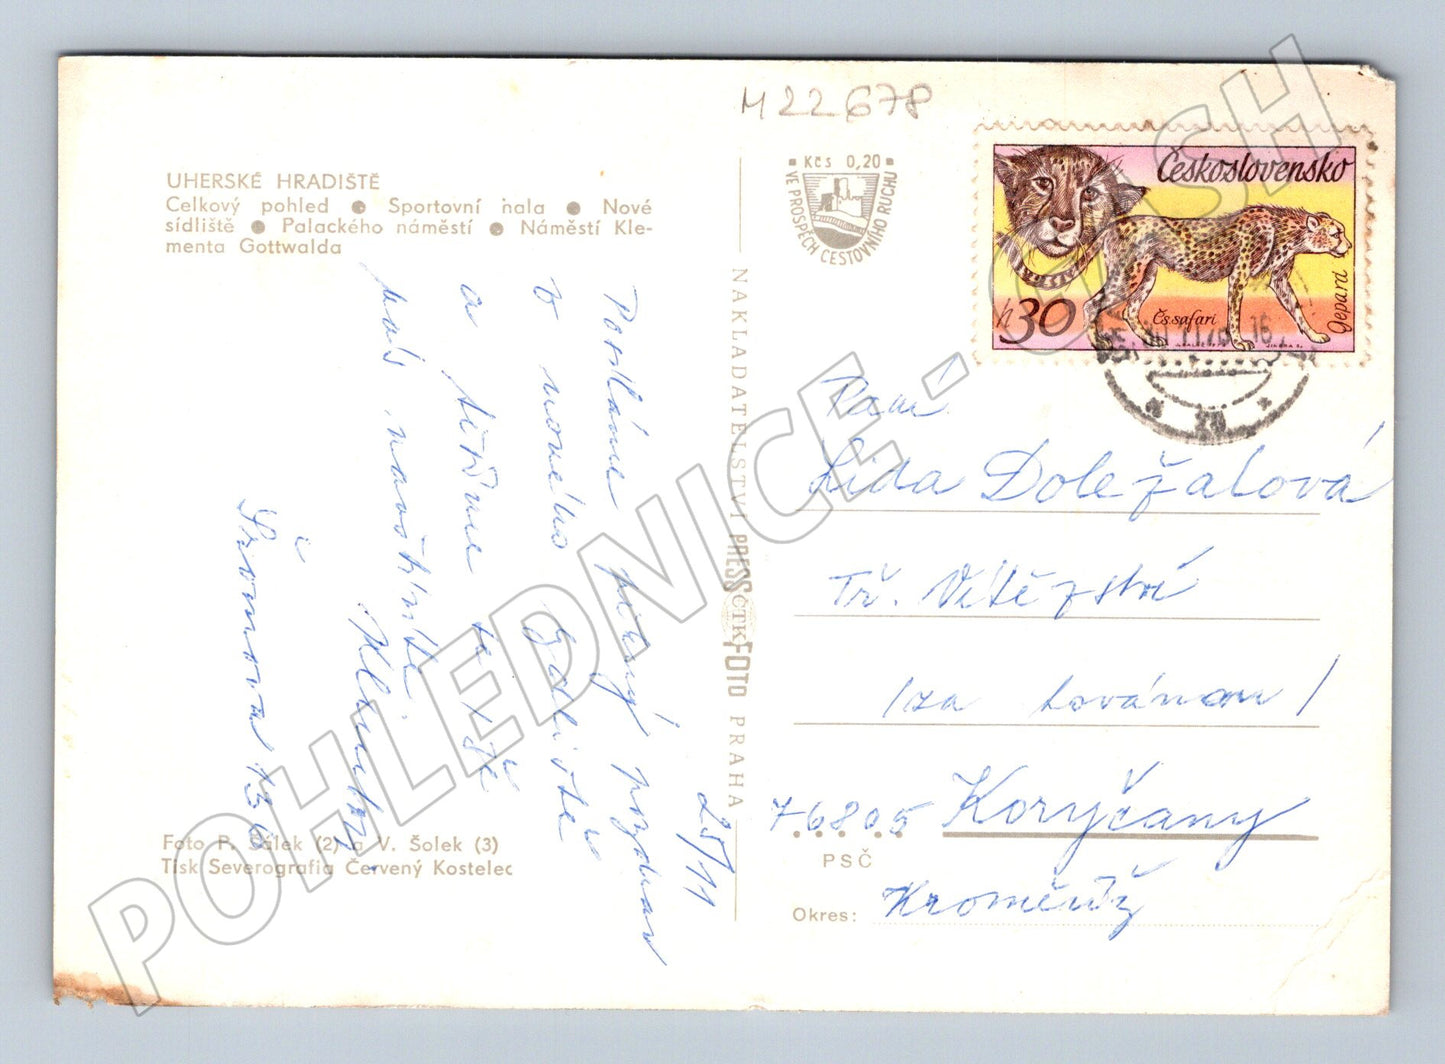 M 22678
UHERSKÉ HRADIŠTĚ
Celkový pohled ● Sportovní hala ● Nové
sídliště ● Palackého náměstí ● Náměstí Kle-
menta Gottwalda
25/11
Posíláme pěkný pozdrav
z nového
a těšíme se že
nás navštívíte.
Šromova 136
Foto P. Sálek (2) a V. Šolek (3)
Tisk Severografia Červený Kostelec
NAKLADATELSTVÍ PRESSČTKFOTO PRAHA
Kčs 0,20
VE PROSPĚCH CESTOVNÍHO RUCHU
Československo
h 30
Čs. safari
gepard
Paní
Lida Doležalová
Tř. Vítězství
/za továrnou/
76805 Koryčany
PSČ
Okres: Kroměříž
POHLEDNICE - CASH